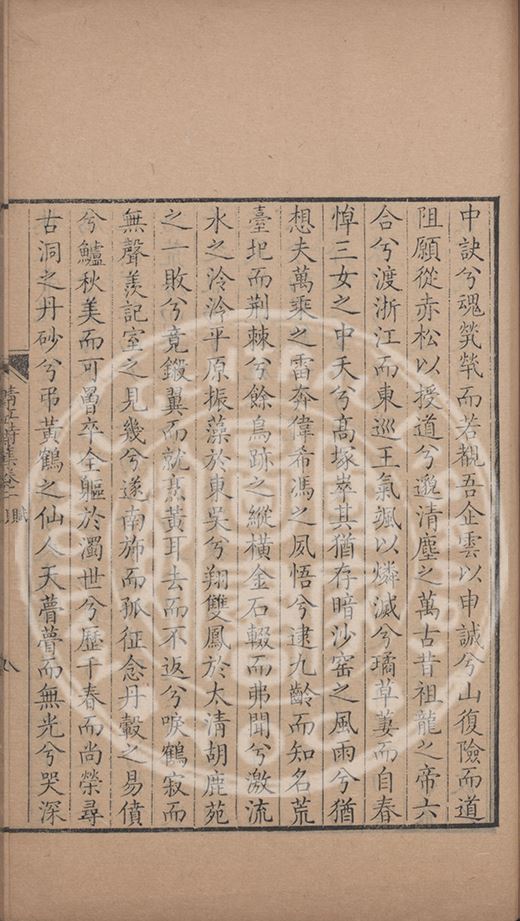 中訣兮魂煢煢而若覩吾企雲以申誠兮山復險而道
阻願從赤松以授道兮邈清塵之萬古昔祖龍之帝六
合兮渡浙江而東巡王氣颯以燐滅兮璚草萋而自春
悼三女之中夭兮高塚崒其猶存暗沙窑之風雨兮猶
想夫萬乘之雷奔偉希馮之夙悟兮逮九齡而知名荒
臺圯而荆棘兮餘鳥跡之縱橫金石輟而弗聞兮激流
水之泠泠平原振藻於東吳兮翔雙鳳於太清胡鹿苑
之一敗兮竟鎩翼而就烹黃耳去而不返兮唳鶴寂而
無聲羡記室之見幾兮遂南斾而孤征念丹轂之易僨
兮鱸秋美而可膾卒全軀於濁世兮歷千春而尚榮尋
古洞之丹砂兮弔黃鶴之仙人天瞢瞢而無光兮哭深
詩集卷一 賦
八